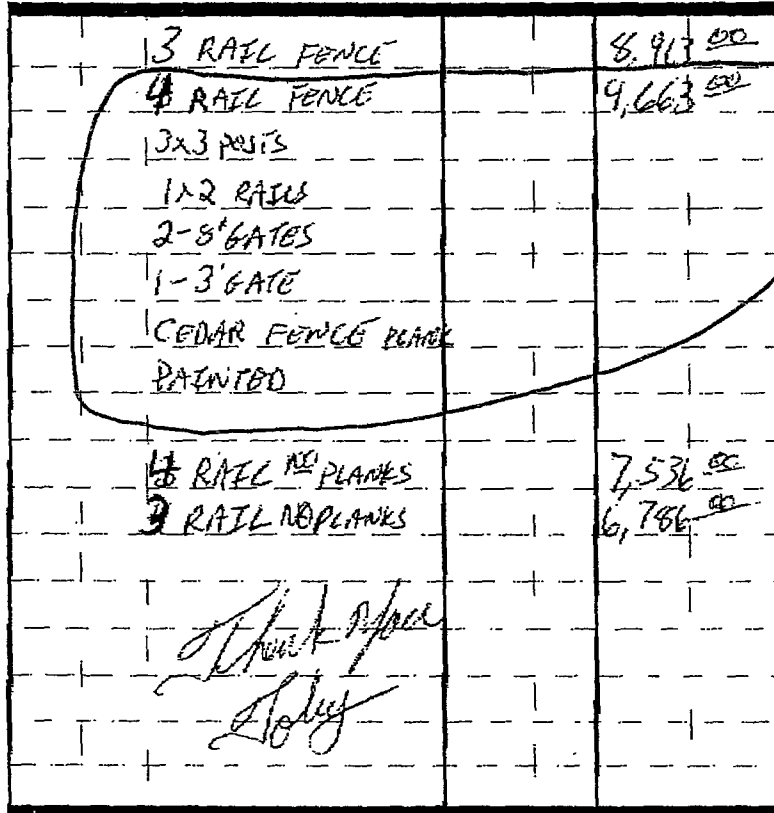 3 RAIL FENCE 8,913 00
4 RAIL FENCE 9,663 00
3x3 POSTS
1x2 RAILS
2-8' GATES
1-3' GATE
CEDAR FENCE PLANK
PAINTED
4 RAIL NO PLANKS 7,536 00
3 RAIL NO PLANKS 6,786 00
Thank You
Toby